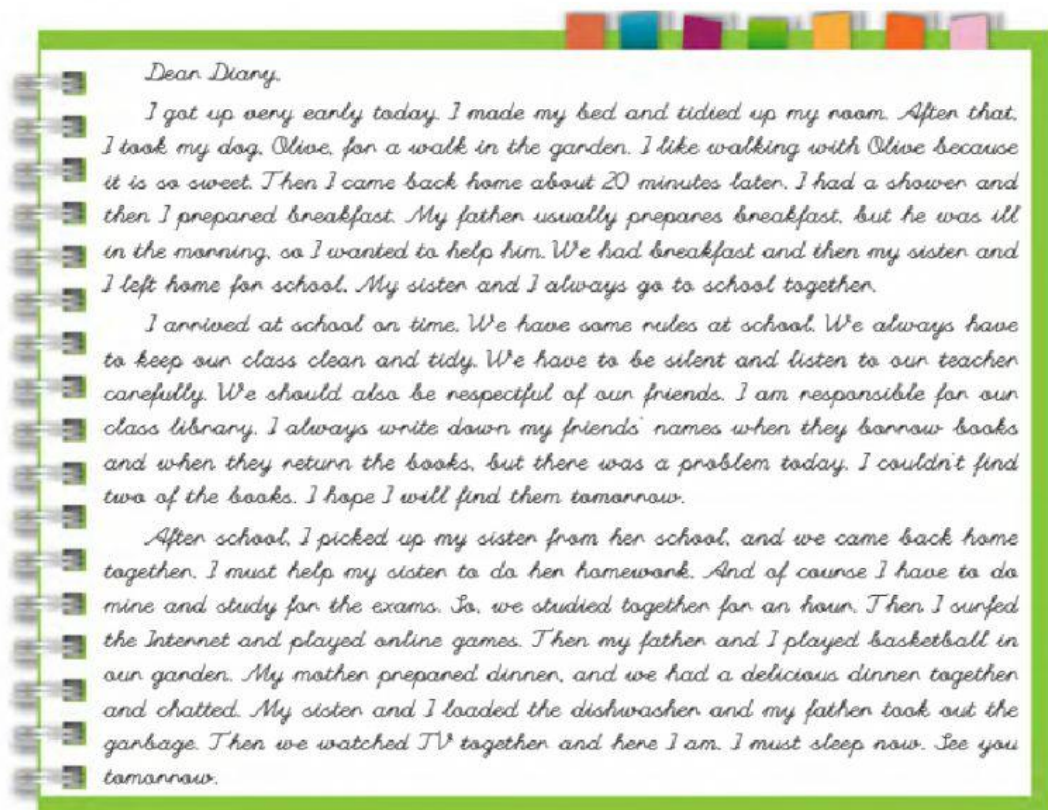 Dear Diary,
I got up very early today. I made my bed and tidied up my room. After that,
I took my dog, Olive, for a walk in the garden. I like walking with Olive because
it is so sweet. Then I came back home about 20 minutes later. I had a shower and
then I prepared breakfast. My father usually prepares breakfast, but he was ill
in the morning, so I wanted to help him. We had breakfast and then my sister and
I left home for school. My sister and I always go to school together.
I arrived at school on time. We have some rules at school. We always have
to keep our class clean and tidy. We have to be silent and listen to our teacher
carefully. We should also be respectful of our friends. I am responsible for our
class library. I always write down my friends' names when they borrow books
and when they return the books, but there was a problem today. I couldn't find
two of the books. I hope I will find them tomorrow.
After school, I picked up my sister from her school, and we came back home
together. I must help my sister to do her homework. And of course I have to do
mine and study for the exams. So, we studied together for an hour. Then I surfed
the Internet and played online games. Then my father and I played basketball in
our garden. My mother prepared dinner, and we had a delicious dinner together
and chatted. My sister and I loaded the dishwasher and my father took out the
garbage. Then we watched TV together and here I am. I must sleep now. See you
tomorrow.